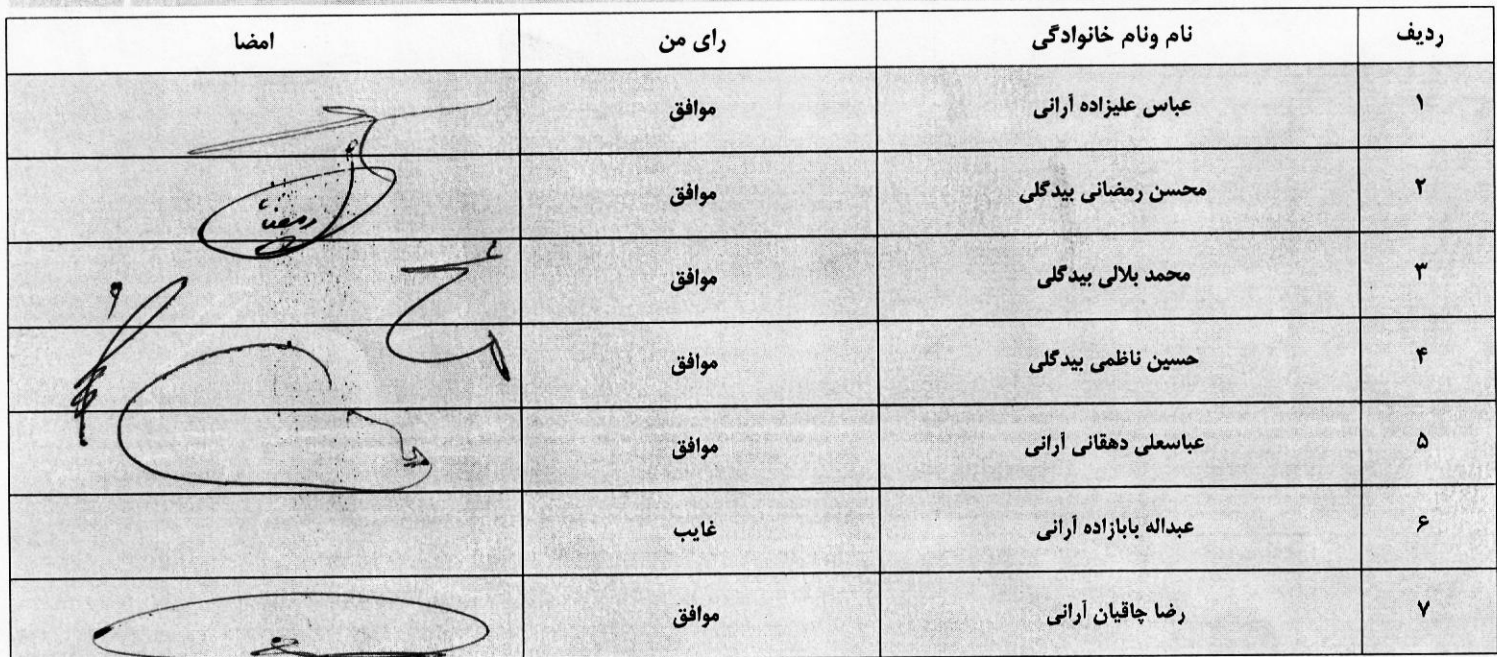 ردیف نام ونام خانوادگی رای من امضا
۱ عباس علیزاده آرانی موافق
۲ محسن رمضانی بیدگلی موافق
۳ محمد بلالی بیدگلی موافق
۴ حسین ناظمی بیدگلی موافق
۵ عباسعلی دهقانی آرانی موافق
۶ عبداله بابازاده آرانی غایب
۷ رضا چاقیان آرانی موافق